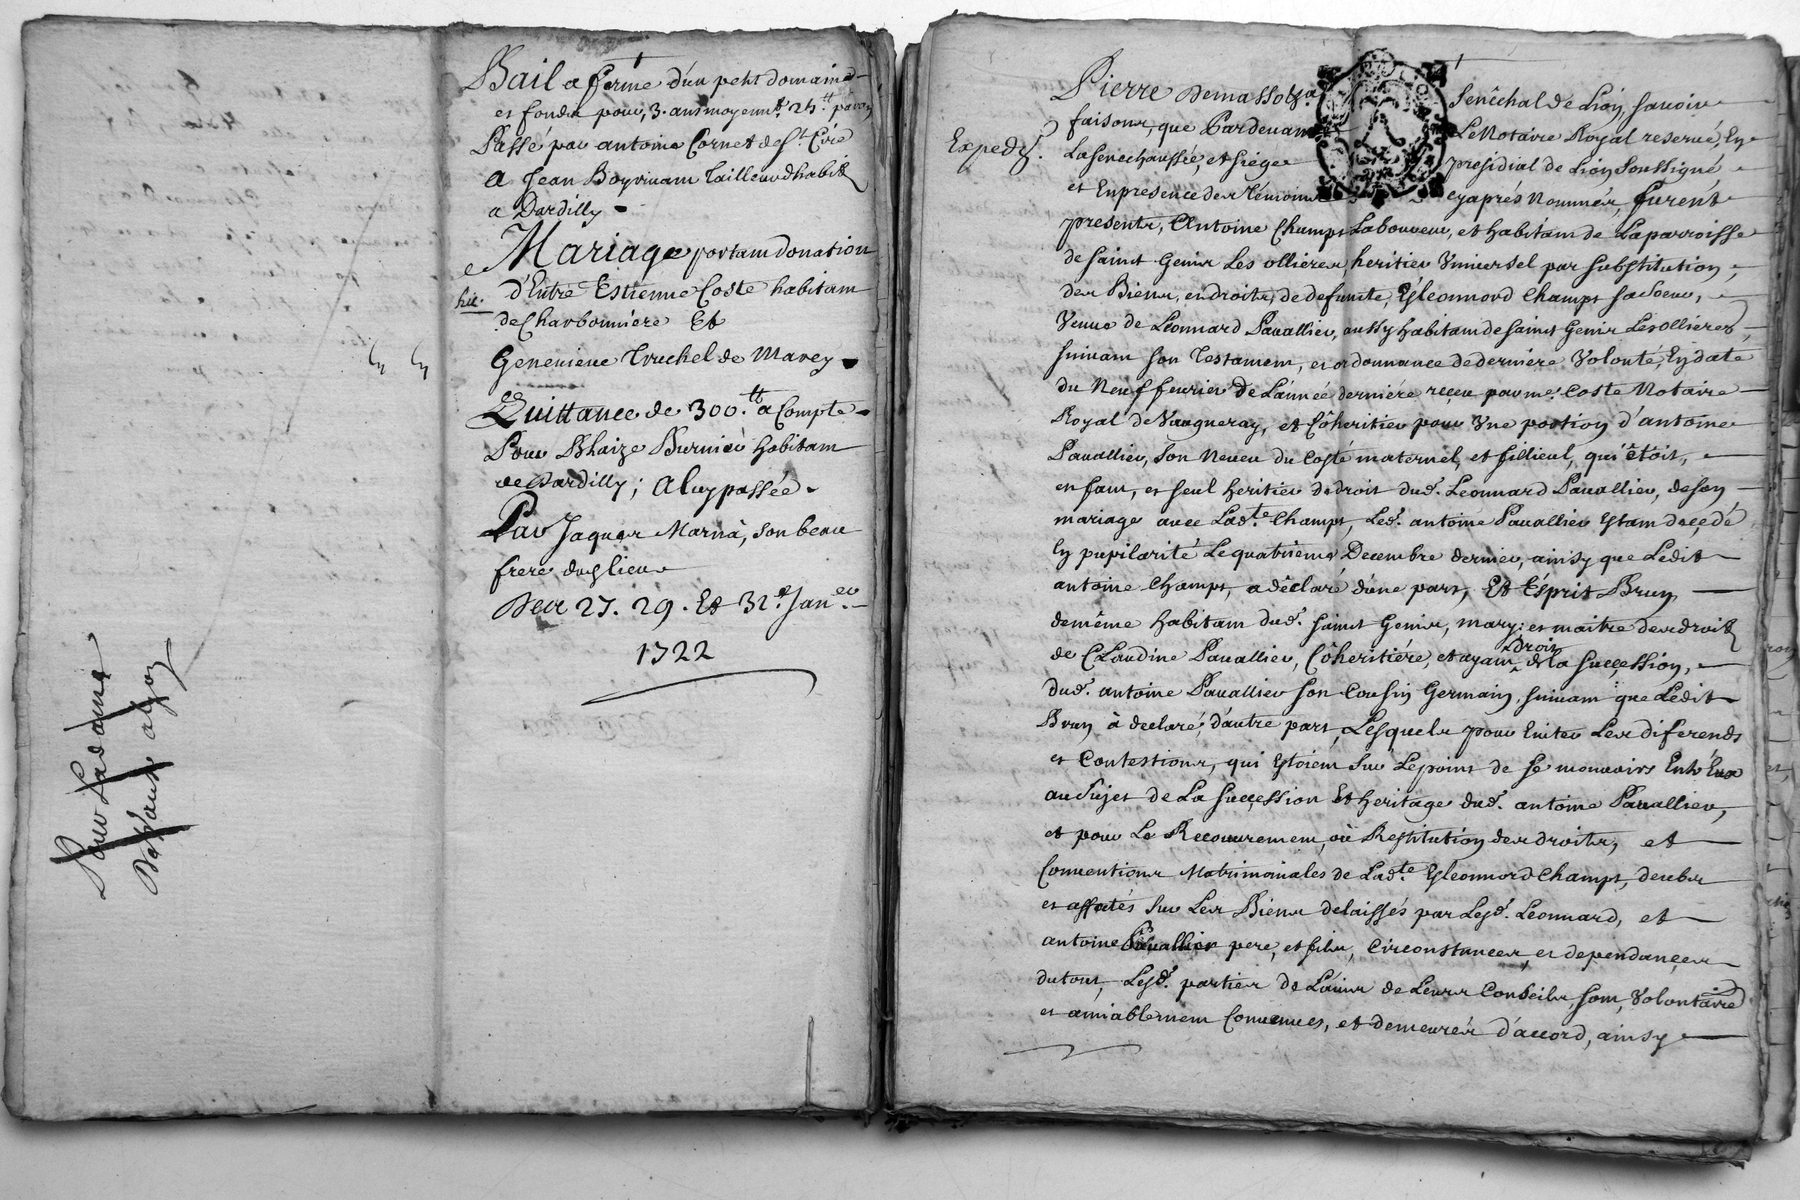 Bail a ferme d'un petit domaine
et fonds pour 3. ans moyennt. 24.tt par an
Passé par antoine Cornet de St. Cire
a Jean Boyrivam Tailleur d habits
a Dardilly
Mariage portam donation
d'Entre Estienne Coste habitam
hic.
de Charbonniere Et
Genevieve Truchel de Marcy
Quittance de 300.tt a Compte
Pour Blaize Bernier habitam
de dardilly; a luy passée
Par Jaques Marria, son beau
frere dud lieu
Des 27. 29. Et 31e. Janer.
1722
Pour Madame
Pierre Demassot
Senêchal de Lion, Savoir
faisons, que Pardevant
Le Notaire Royal reservé, En
Expedié.
La Senechaussée, et Siege
presidial de Lion Soussigné
et En presence des Témoins
cy aprés Nommés, furent
presents, Antoine Champs Laboureur, et habitam de La parroisse
de Saint Genis Les ollieres, heritier Universel par Substitution,
des Biens, en droits, de defuncte, Gleonnord Champs Sa Soeur,
Veuve de Leonnard Pavallier, aussy habitam de Saint Genis Les ollieres,
Suivam Son Testament, et ordonnance de derniére Volonté, En date
du Neuf fevrier de L'année derniére reçeu par me. Coste Notaire
Royal de Vaugneray, et Côheritier pour Une portion d'antoine
Pavallier, Son Neveu du Costé maternel, et fillieul, qui étoit,
enfant, et Seul heritier de droit dud. Leonnard Pavallier, de Son
mariage avec Ladte. Champs, Led. antoine Pavallier Estam decedé
En pupilarité Le quatriéme Decembre dernier, ainsy que Ledit
antoine Champs, a déclaré d'une part, Et Esprit Brun,
demême habitam dud. Saint Genis, mary; et maitre des droits
de Claudine Pavallier, Côheritiére, et ayant droit de la Succession,
dud. antoine Pavallier Son Cousin Germain, Suivam que Ledit
Brun à declaré, d'autre part, Lesquels pour Eviter Les diferends
et Contestions, qui Etoient Sur Le point de Se mouvoirs Entr'Eux
au Sujet de La Succession Et heritage dud. antoine Pavallier,
et pour Le Recouvrement, où Restitution des droits, et
Conventions Matrimoniales de Ladte. Gleonnord Champs, deubs
et affectés Sur Les Biens delaissés par Lesd. Leonnard, et
antoine Pavallier pere, et fils, Circonstances, et dependances
du tout, Lesd. parties de L'avis de Leurs Conseils Sont, Volontaire
et amiablement Convenues, et demeurés d'accord, ainsy